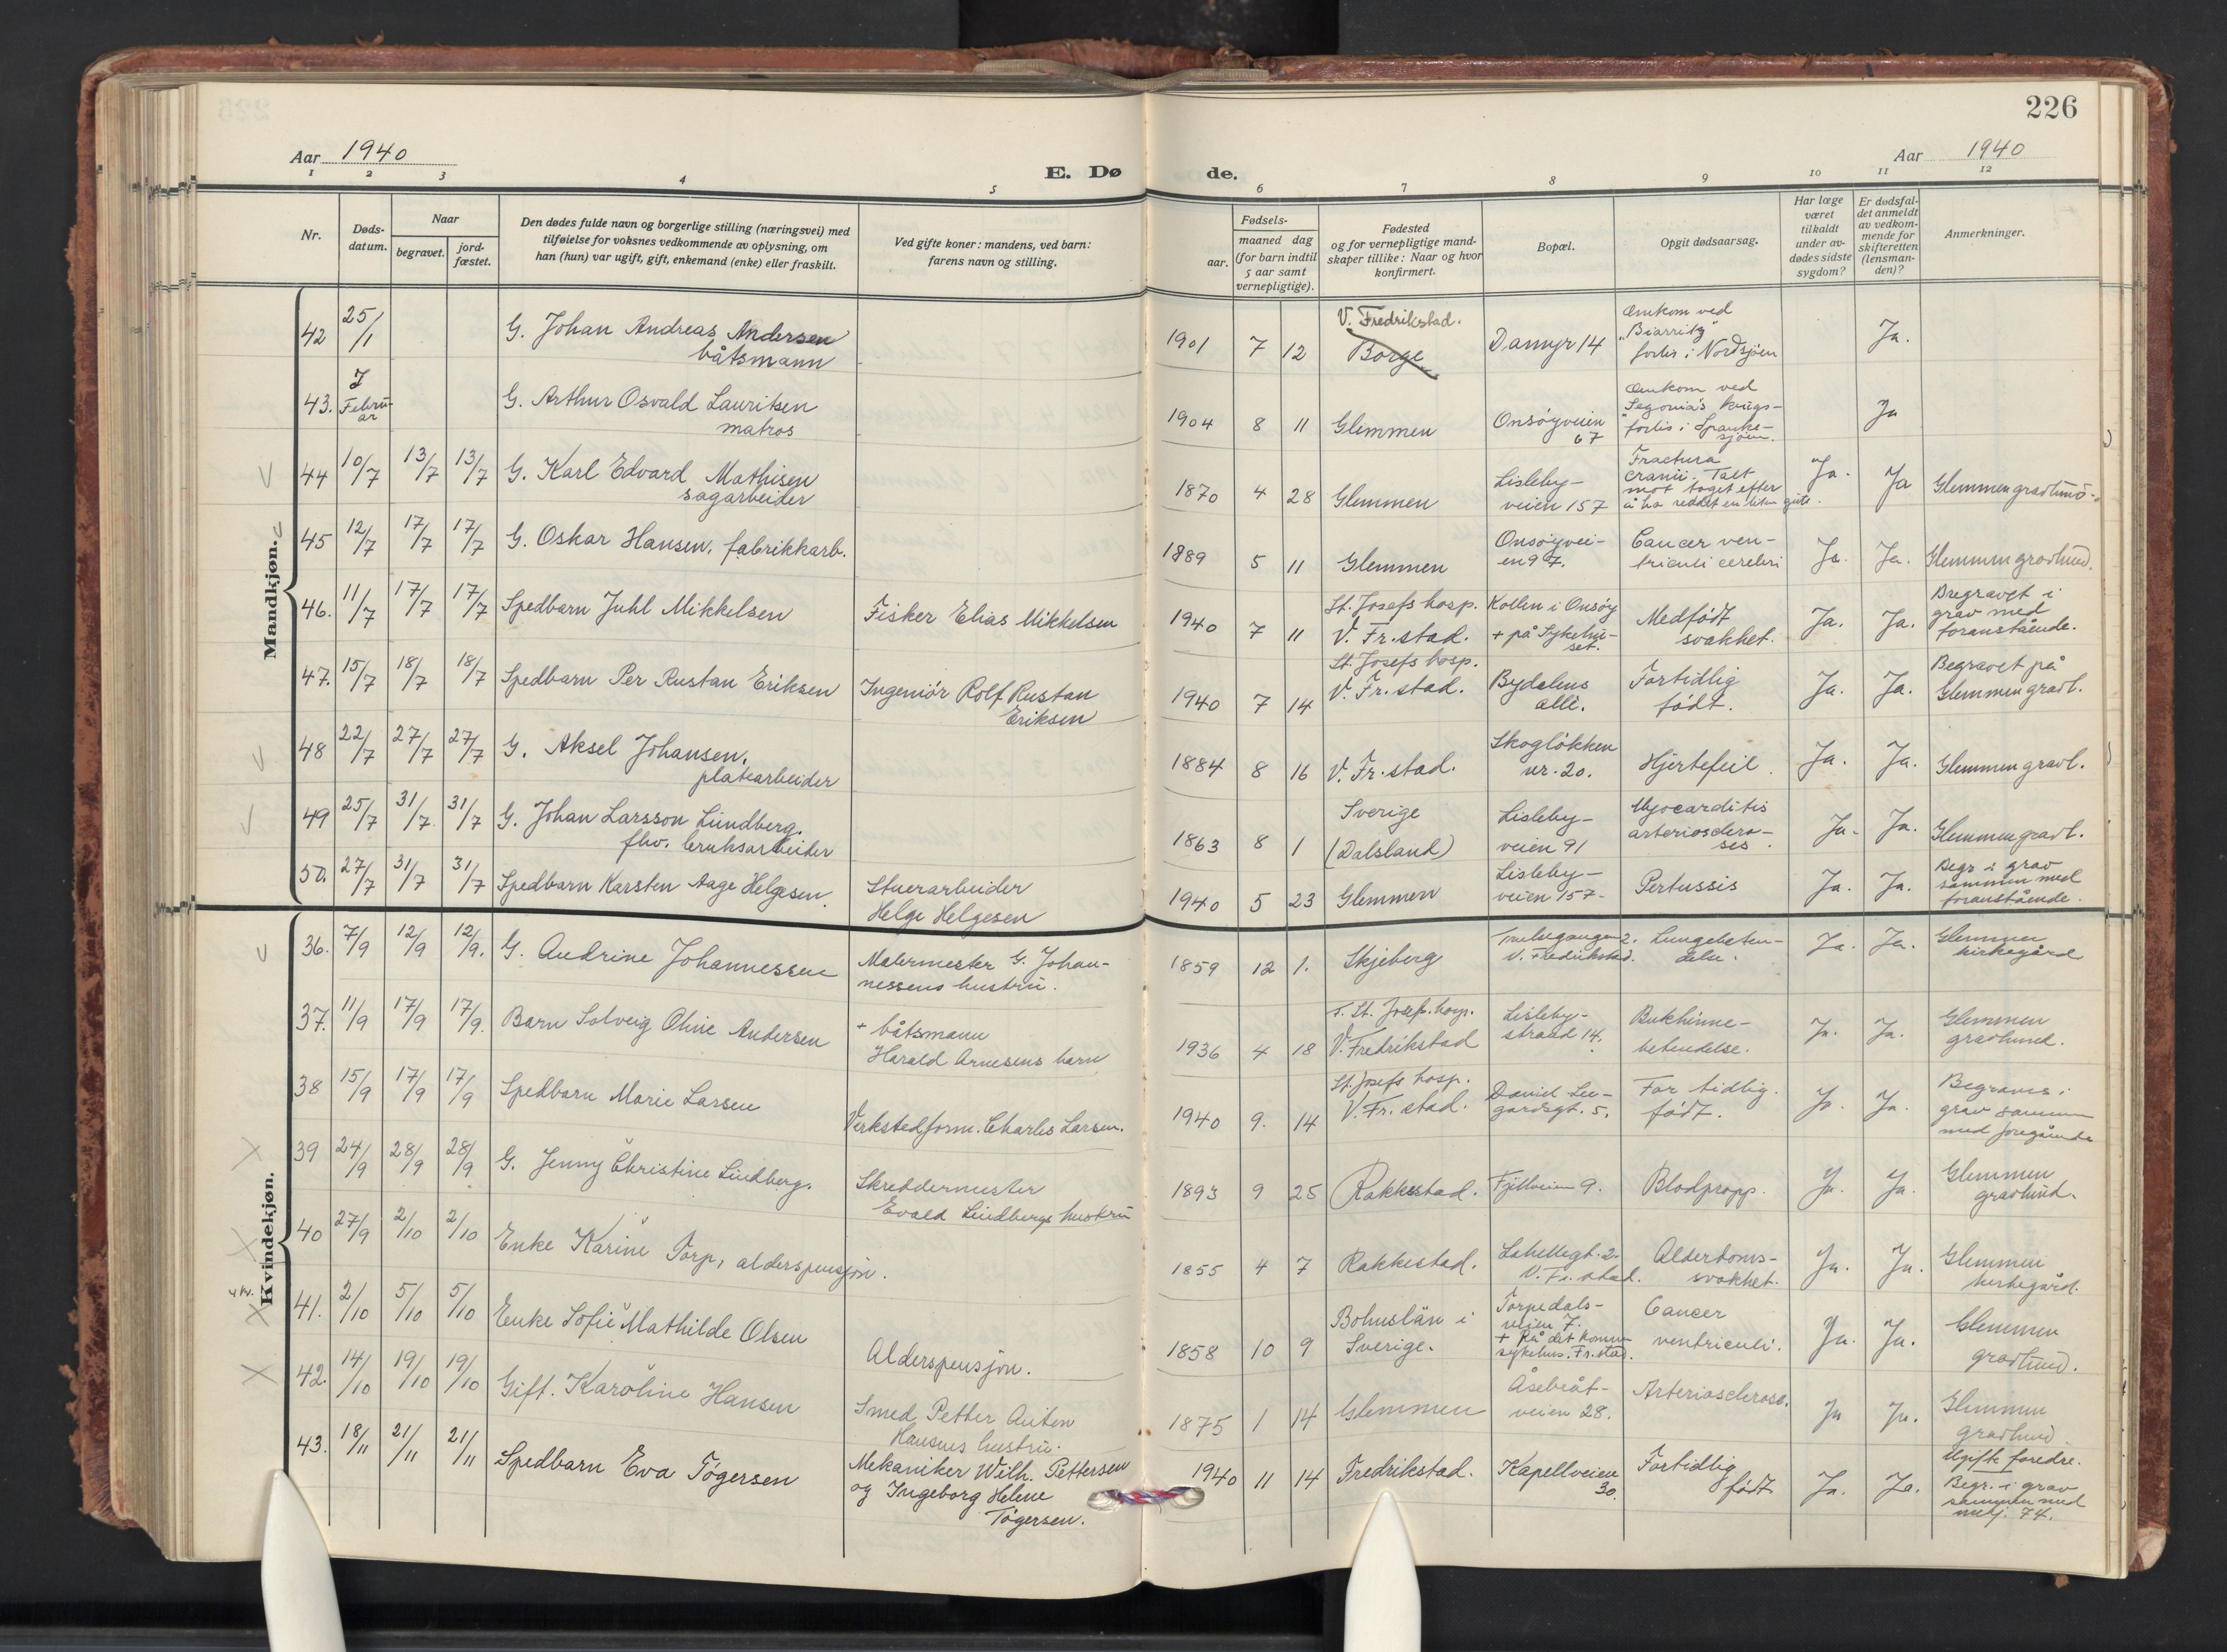 226
Aar 1940
E. Dø de.
Aar 1940
1 2 3 4 5 6 7 8 9 10 11 12
Nr.
Døds-
datum.
Naar
begravet.
jord-
fæstet.
Den dødes fulde navn og borgerlige stilling (næringsvei) med
tilføielse for voksnes vedkommende av oplysning, om
han (hun) var ugift, gift, enkemand (enke) eller fraskilt.
Ved gifte koner: mandens, ved barn:
farens navn og stilling.
Fødsels-
aar.
maaned dag
(for barn indtil
5 aar samt
vernepligtige).
Fødested
og for vernepligtige mand-
skaper tillike: Naar og hvor
konfirmert.
Bopæl.
Opgit dødsaarsag.
Har læge
været
tilkaldt
under av-
dødes sidste
sygdom?
Er dødsfal-
det anmeldt
av vedkom-
mende for
skifteretten
(lensman-
den)?
Anmerkninger.
Mandkjøn.
42 25/1 G. Johan Andreas Andersen
båtsmann
1901 7 12
V. Fredrikstad.
Borge
Damyr 14
Omkom ved
"Biarritz"
forlis i Nordsjøen
Ja.
43. I
Febru-
ar
G. Arthur Osvald Lauritsen
matros
1904 8 11 Glemmen
Onsöyveien
67
Omkom ved
"Segovia's krigs-
forlis i Spanke-
sjøen.
Ja
44 10/7 13/7 13/7 G. Karl Edvard Mathisen
sagarbeider
1870 4 28 Glemmen
Lisleby-
veien 157
Fractura
cranii. Talt
mot toget efter
å ha reddet en liten gutt.
Ja. Ja
Glemmen gravlund.
45 12/7 17/7 17/7 G. Oskar Hansen, fabrikkarb.
1889 5 11 Glemmen
Onsöyvei-
en 97.
Cancer ven-
triculi cerebri
Ja. Ja. Glemmen gravlund.
46. 11/7 17/7 17/7 Spedbarn Juhl Mikkelsen
Fisker Elias Mikkelsen
1940 7 11
St. Josefs hosp.
V. Fr.stad.
Kollen i Onsöy
+ på Sykehu-
set.
Medfödt
svakhet.
Ja. Ja.
Begravet i
grav med
foranstående.
47. 15/7 18/7 18/7 Spedbarn Per Rustan Eriksen
Ingeniör Rolf Rustan
Eriksen
1940 7 14
St. Josefs hosp.
V. Fr.stad.
Bydalens
allè.
Fortidlig
födt.
Ja. Ja.
Begravet på
Glemmen gravl.
48 22/7 27/7 27/7 G. Aksel Johansen,
platearbeider
1884 8 16 V. Fr.stad.
Skoglökken
nr. 20.
Hjertefeil.
Ja. Ja. Glemmen gravl.
49 25/7 31/7 31/7 G. Johan Larsson Lundberg.
fhv. bruksarbeider
1863 8 1
Sverige
(Dalsland)
Lisleby-
veien 91
Myocarditis
arteriosclero-
ses.
Ja. Ja. Glemmen gravl.
50. 27/7 31/7 31/7 Spedbarn Karsten Aage Helgesen.
Stuerarbeider
Helge Helgesen
1940 5 23 Glemmen
Lisleby-
veien 157.
Pertussis
Ja. Ja.
Begr. i grav
sammen med
foranstående.
Kvindekjøn.
36. 7/9 12/9 12/9. G. Audrine Johannessen
Malermester G. Johan-
nessens hustru.
1859 12 1. Skjeberg
V. Fredrikstad.
Lungebeten-
delse.
Ja. Ja.
Glemmen
kirkegård
37. 11/9 17/9 17/9. Barn Solveig Oline Andersen
+ båtsmann
Harald Arnesens barn
1936 4 18
F. St. Josefs hosp.
V. Fredrikstad
Lisleby-
strand 14.
Bukhinne-
betendelse.
Ja. Ja.
Glemmen
gravlund.
38 15/9 17/9 17/9 Spedbarn Marie Larsen
Verkstedform. Charles Larsen.
1940 9. 14
St. Josefs hosp.
V. Fr.stad.
David Lee-
gardsgt. 5.
For tidlig
født.
Ja. Ja.
Begraves i
grav sammen
med foregående
39 24/9 28/9 28/9 G. Jenny Christine Lindberg.
Skreddermester
Evald Lindbergs hustru
1893 9 25 Rakkestad. Fjellveien 9. Blodpropp.
Ja. Ja.
Glemmen
gravlund.
40 27/9 2/10 2/10 Enke Karine Torp, alderspensjon.
1855 4 7 Rakkestad.
Labellegt. 2.
V. Fr.stad.
Alderdoms-
svakhet.
Ja. Ja.
Glemmen
kirkegård.
41. 2/10 5/10 5/10 Enke Sofie Mathilde Olsen
Alderspensjon.
1858 10 9
Bohuslän i
Sverige.
Torpedals-
veien 7.
+ På det komm
sykehus. Fr.stad.
Cancer
ventriculi.
Ja. Ja.
Glemmen
gravlund.
42. 14/10 19/10 19/10 Gift. Karoline Hansen
Smed Petter Anton
Hansens hustru.
1875 1 14 Glemmen
Åsebråt-
veien 28.
Arteriosclerose.
Ja Ja.
Glemmen
gravlund.
43. 18/11 21/11 21/11 Spedbarn Eva Tögersen
Mekaniker Wilh. Pettersen
og Ingeborg Helene
Tögersen.
1940 11 14 Fredrikstad.
Kapellveien
30.
Fortidlig
født
Ja. Ja.
Ugifte foredre.
Begr. i grav
sammen med
milj. 74.